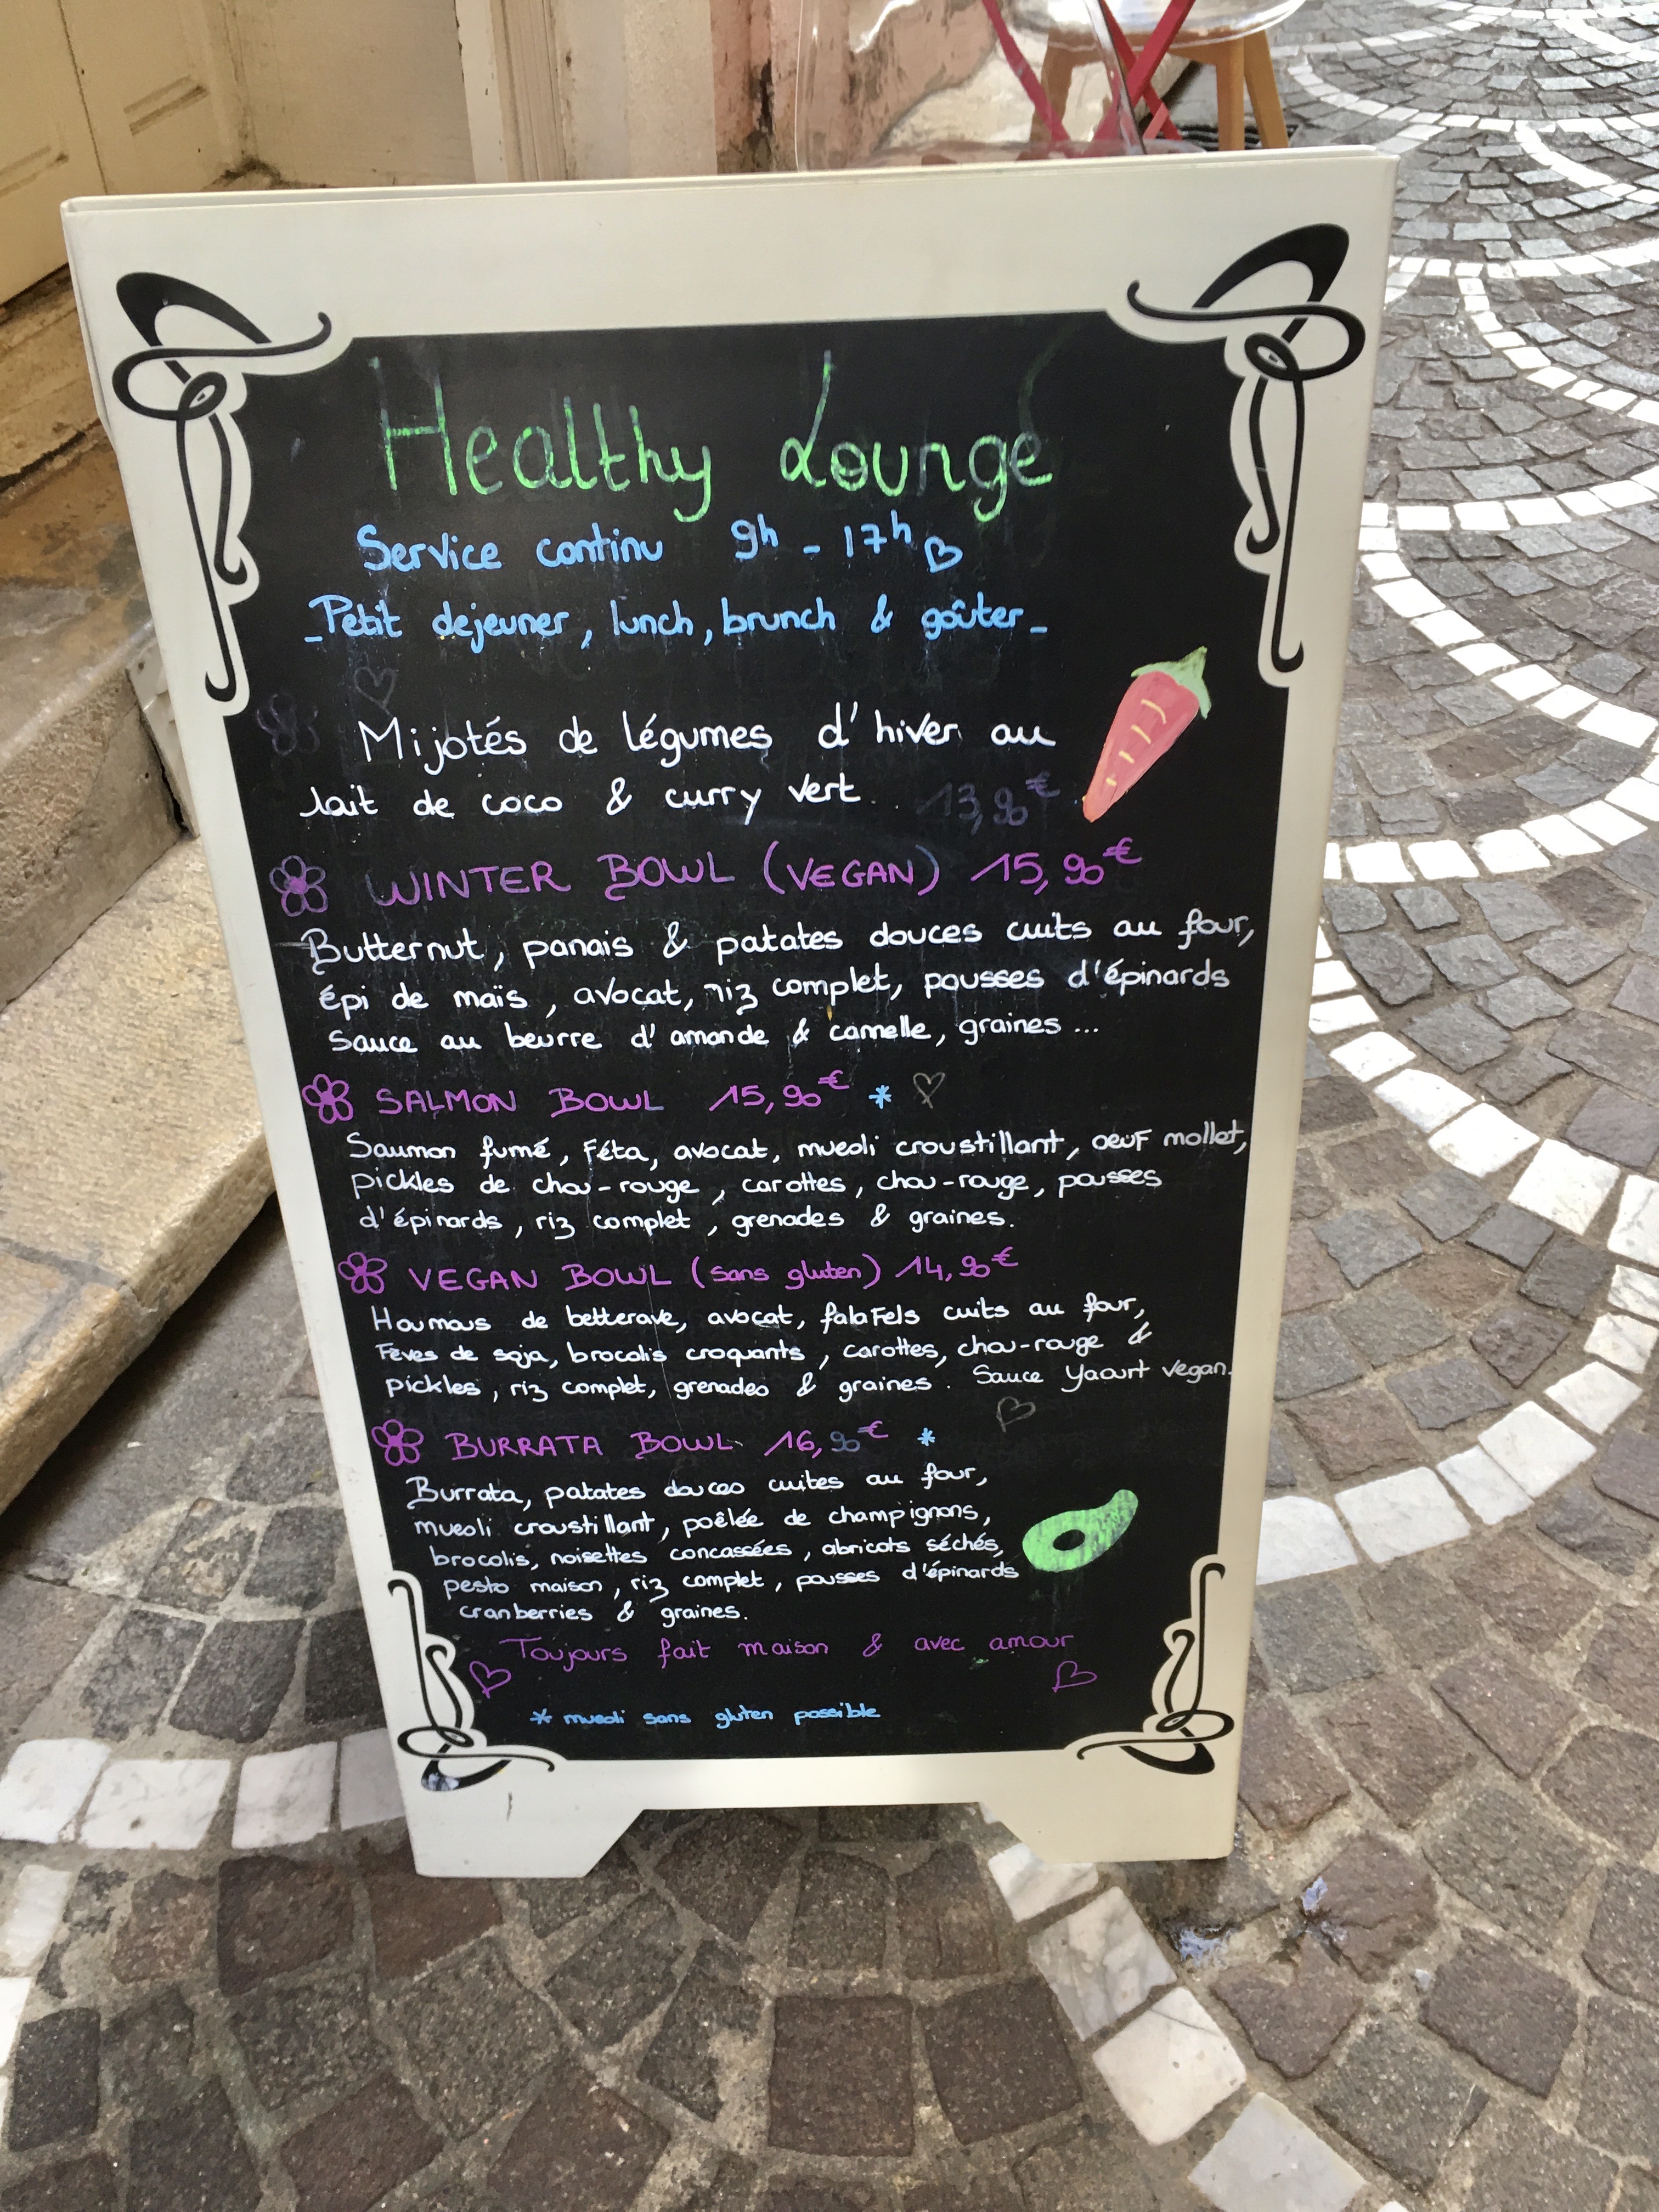 Healthy Lounge
Service continu 9h - 17h
- Petit dejeuner, lunch, brunch & goûter -
Mijotés de légumes d'hiver au
lait de coco & curry vert 13,90€
WINTER BOWL (VEGAN) 15,90€
Butternut, panais & patates douces cuits au four,
épi de maïs, avocat, riz complet, pousses d'épinards
Sauce au beurre d'amande & cannelle, graines...
SALMON BOWL 15,90€ *
Saumon fumé, Féta, avocat, muesli croustillant, oeuf mollet,
pickles de chou-rouge, carottes, chou-rouge, pousses
d'épinards, riz complet, grenades & graines.
VEGAN BOWL (sans gluten) 14,90€
Houmous de betterave, avocat, falafels cuits au four,
Fèves de soja, brocolis croquants, carottes, chou-rouge &
pickles, riz complet, grenades & graines. Sauce Yaourt vegan.
BURRATA BOWL 16,90€ *
Burrata, patates douces cuites au four,
muesli croustillant, poêlée de champignons,
brocolis, noisettes concassées, abricots séchés,
pesto maison, riz complet, pousses d'épinards
cranberries & graines.
Toujours fait maison & avec amour
* muesli sans gluten possible